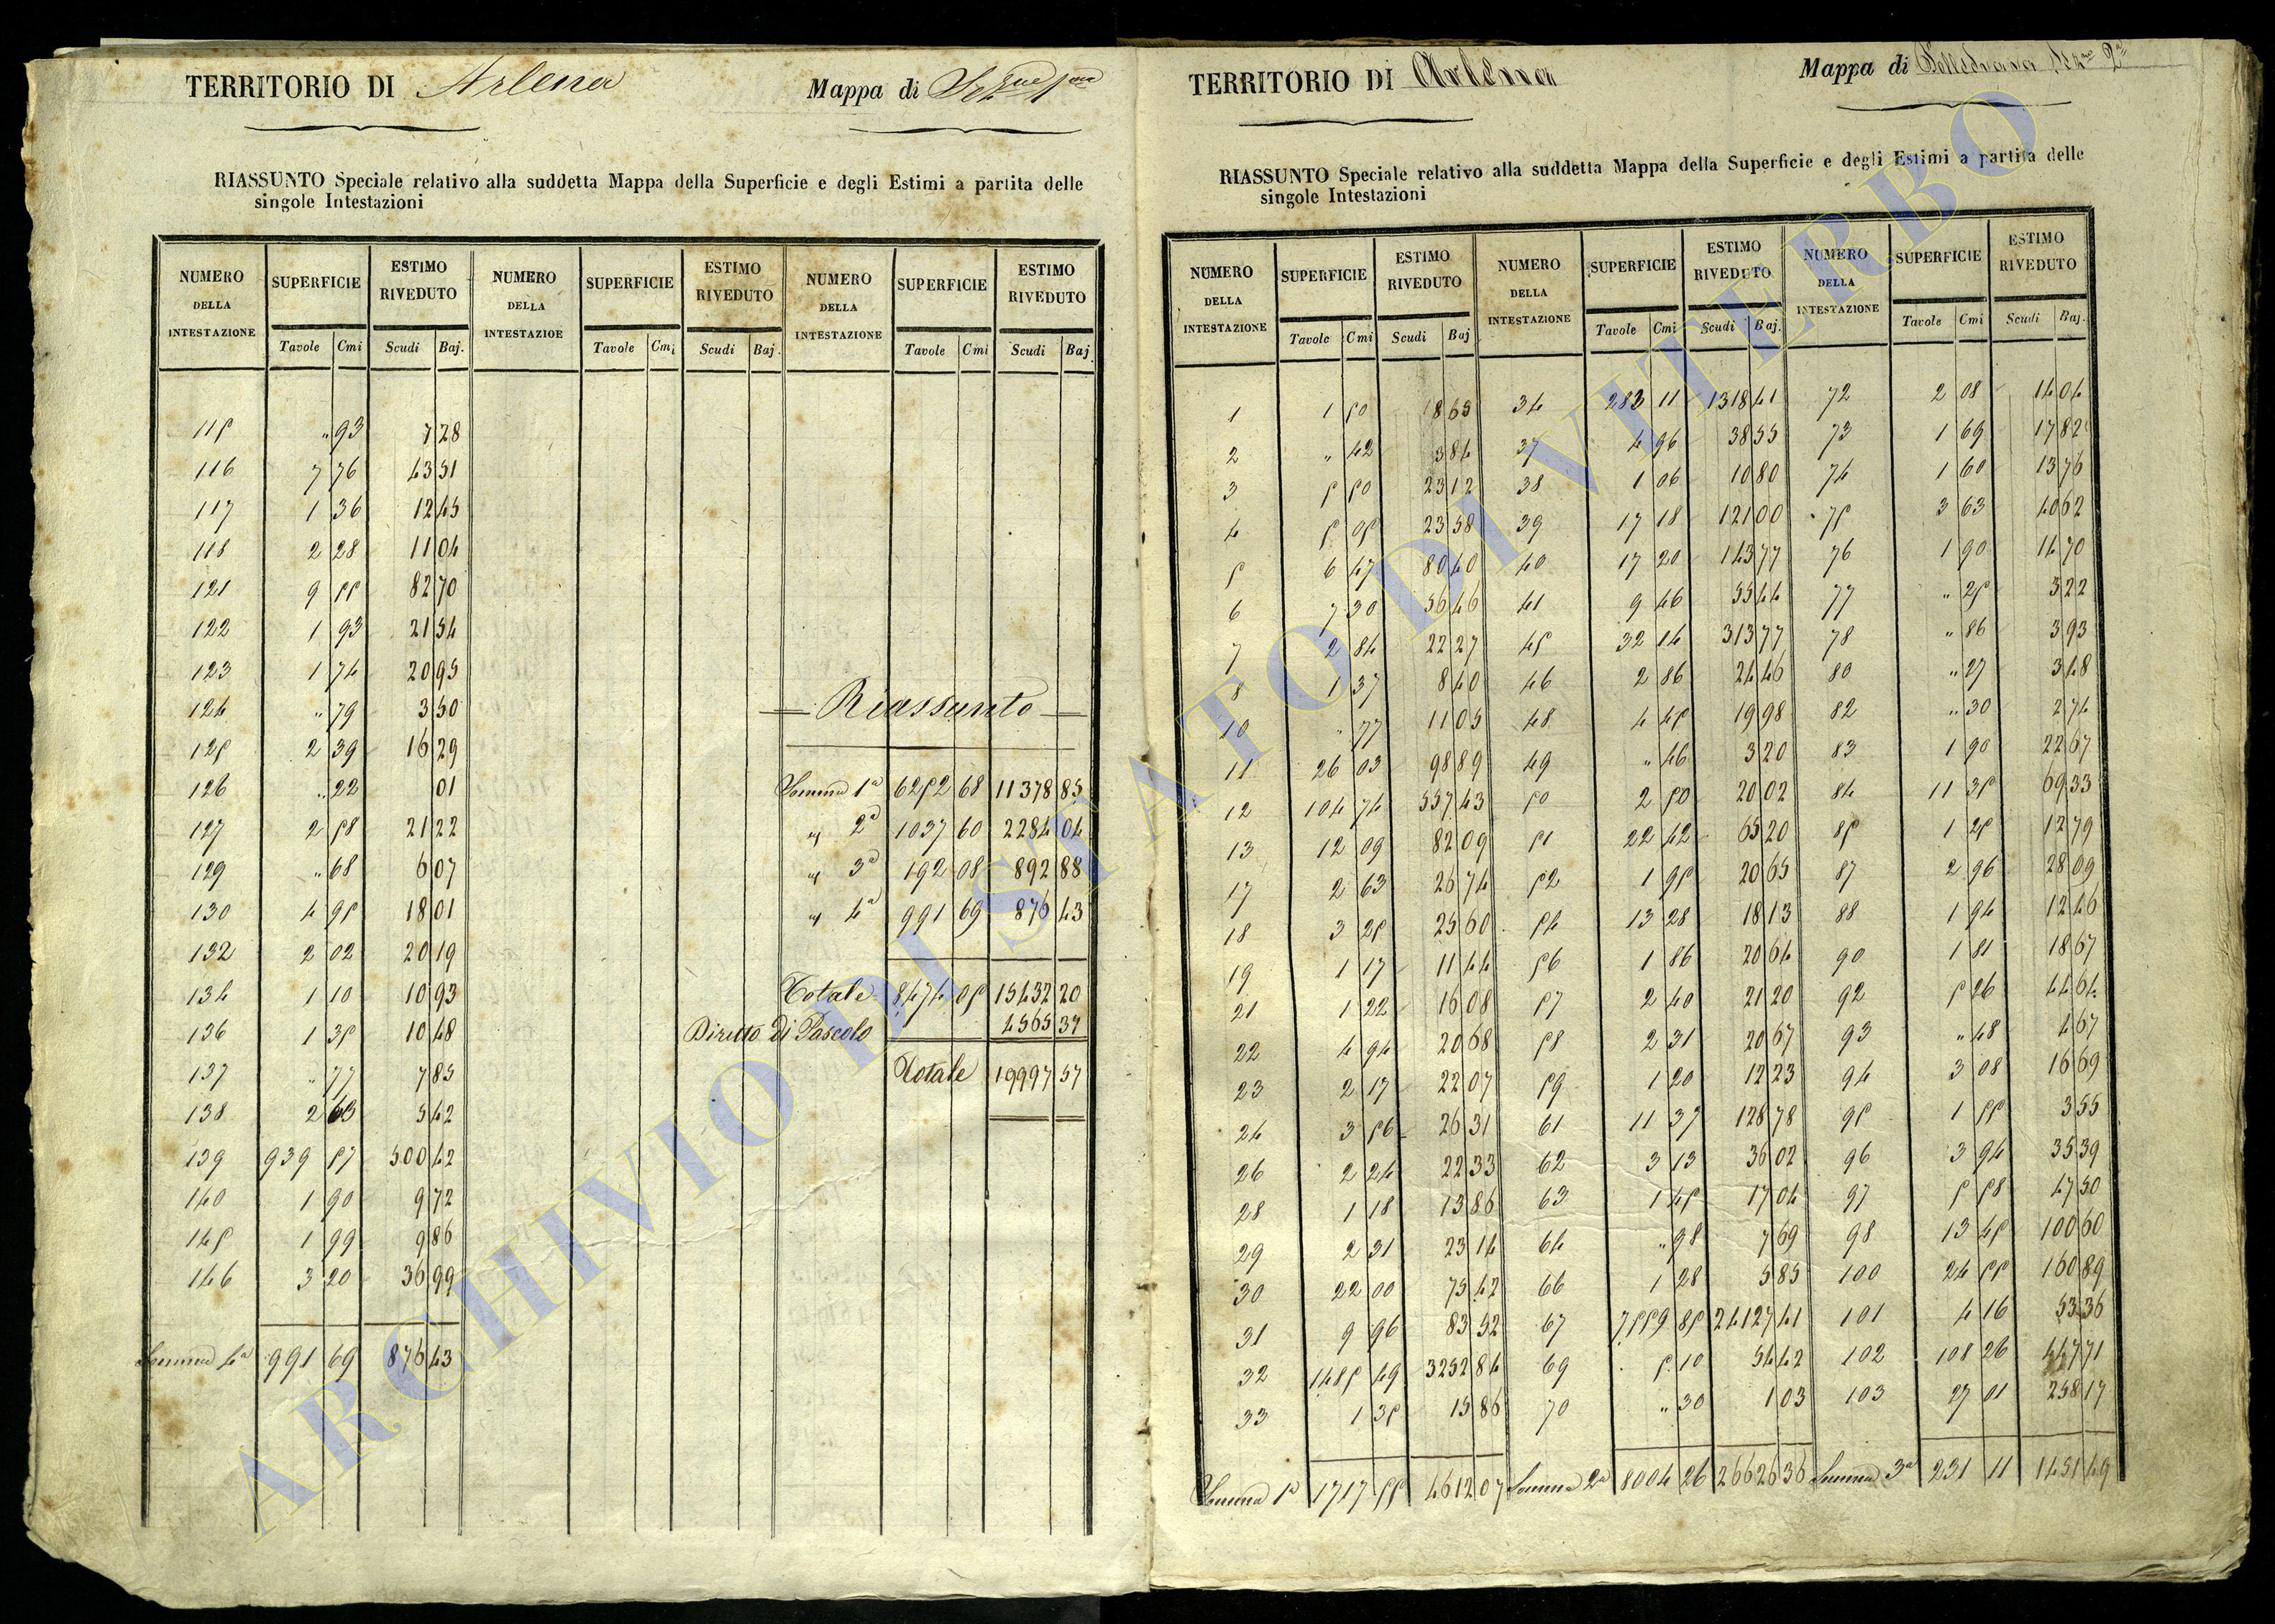 TERRITORIO DI Arlena
Mappa di
RIASSUNTO Speciale relativo alla suddetta Mappa della Superficie e degli Estimi a partita delle
singole Intestazioni
NUMERO DELLA INTESTAZIONE SUPERFICIE ESTIMO RIVEDUTO NUMERO DELLA INTESTAZIOE SUPERFICIE ESTIMO RIVEDUTO NUMERO DELLA INTESTAZIONE SUPERFICIE ESTIMO RIVEDUTO
Tavole Cmi Scudi Baj. Tavole Cmi Scudi Baj. Tavole Cmi Scudi Baj.
115 " 93 7 28
116 7 76 43 51
117 1 36 12 45
118 2 28 11 04
121 9 55 82 70
122 1 93 21 54
123 1 74 20 95
124 " 79 3 50
Riassunto
125 2 39 16 29
126 " 22 01 Somma 1a 6252 68 11378 85
127 2 58 21 22 " 2a 1037 60 2284 04
129 " 68 6 07 " 3a 192 08 892 88
130 4 95 18 01 " 4a 991 69 876 43
132 2 02 20 19
134 1 10 10 93 Totale 8474 05 15432 20
136 1 35 10 48 Diritto di Pascolo 4565 37
137 " 77 7 85 Totale 19997 57
138 2 63 5 42
139 939 57 500 42
140 1 90 9 72
145 1 99 9 86
146 3 20 36 99
Somma 4a 991 69 876 43
TERRITORIO DI Arlena
Mappa di
RIASSUNTO Speciale relativo alla suddetta Mappa della Superficie e degli Estimi a partita delle
singole Intestazioni
NUMERO DELLA INTESTAZIONE SUPERFICIE ESTIMO RIVEDUTO NUMERO DELLA INTESTAZIONE SUPERFICIE ESTIMO RIVEDUTO NUMERO DELLA INTESTAZIONE SUPERFICIE ESTIMO RIVEDUTO
Tavole Cmi Scudi Baj Tavole Cmi Scudi Baj. Tavole Cmi Scudi Baj.
1 1 50 18 65 34 283 11 1318 41 72 2 08 14 04
2 " 42 3 84 37 4 96 38 55 73 1 69 17 82
3 5 50 23 12 38 1 06 10 80 74 1 60 13 76
4 5 05 23 58 39 17 18 121 00 75 3 63 40 62
5 6 47 80 40 40 17 20 143 77 76 1 90 14 70
6 7 30 56 46 41 9 46 55 44 77 " 25 3 22
7 2 84 22 27 45 32 14 313 77 78 " 86 3 93
8 1 37 8 40 46 2 86 24 46 80 " 27 3 48
10 " 77 11 05 48 4 45 19 98 82 " 30 2 74
11 26 03 98 89 49 " 46 3 20 83 1 90 22 67
12 104 74 557 43 50 2 50 20 02 84 11 35 69 33
13 12 09 82 09 51 22 42 65 20 85 1 25 12 79
17 2 63 26 74 52 1 95 20 65 87 2 96 28 09
18 3 25 25 60 54 13 28 18 13 88 1 94 12 46
19 1 17 11 44 56 1 86 20 64 90 1 81 18 67
21 1 22 16 08 57 2 40 21 20 92 5 26 44 64
22 4 94 20 68 58 2 31 20 67 93 " 48 4 67
23 2 17 22 07 59 1 20 12 23 94 3 08 16 69
24 3 56 26 31 61 11 37 128 78 95 1 55 3 55
26 2 24 22 33 62 3 13 36 02 96 3 94 35 39
28 1 18 13 86 63 1 45 17 04 97 5 58 47 50
29 2 31 23 14 64 " 98 7 69 98 13 45 100 60
30 22 00 75 42 66 1 28 5 85 100 24 55 160 89
31 9 96 83 52 67 7559 85 24127 41 101 4 16 53 36
32 1485 49 3252 84 69 5 10 54 42 102 108 26 447 71
33 1 35 15 86 70 " 30 1 03 103 27 01 258 17
Somma 1a 1717 55 4612 07 Somma 2a 8004 26 26626 36 Somma 3a 231 11 1451 49
ARCHIVIO DI STATO DI VITERBO